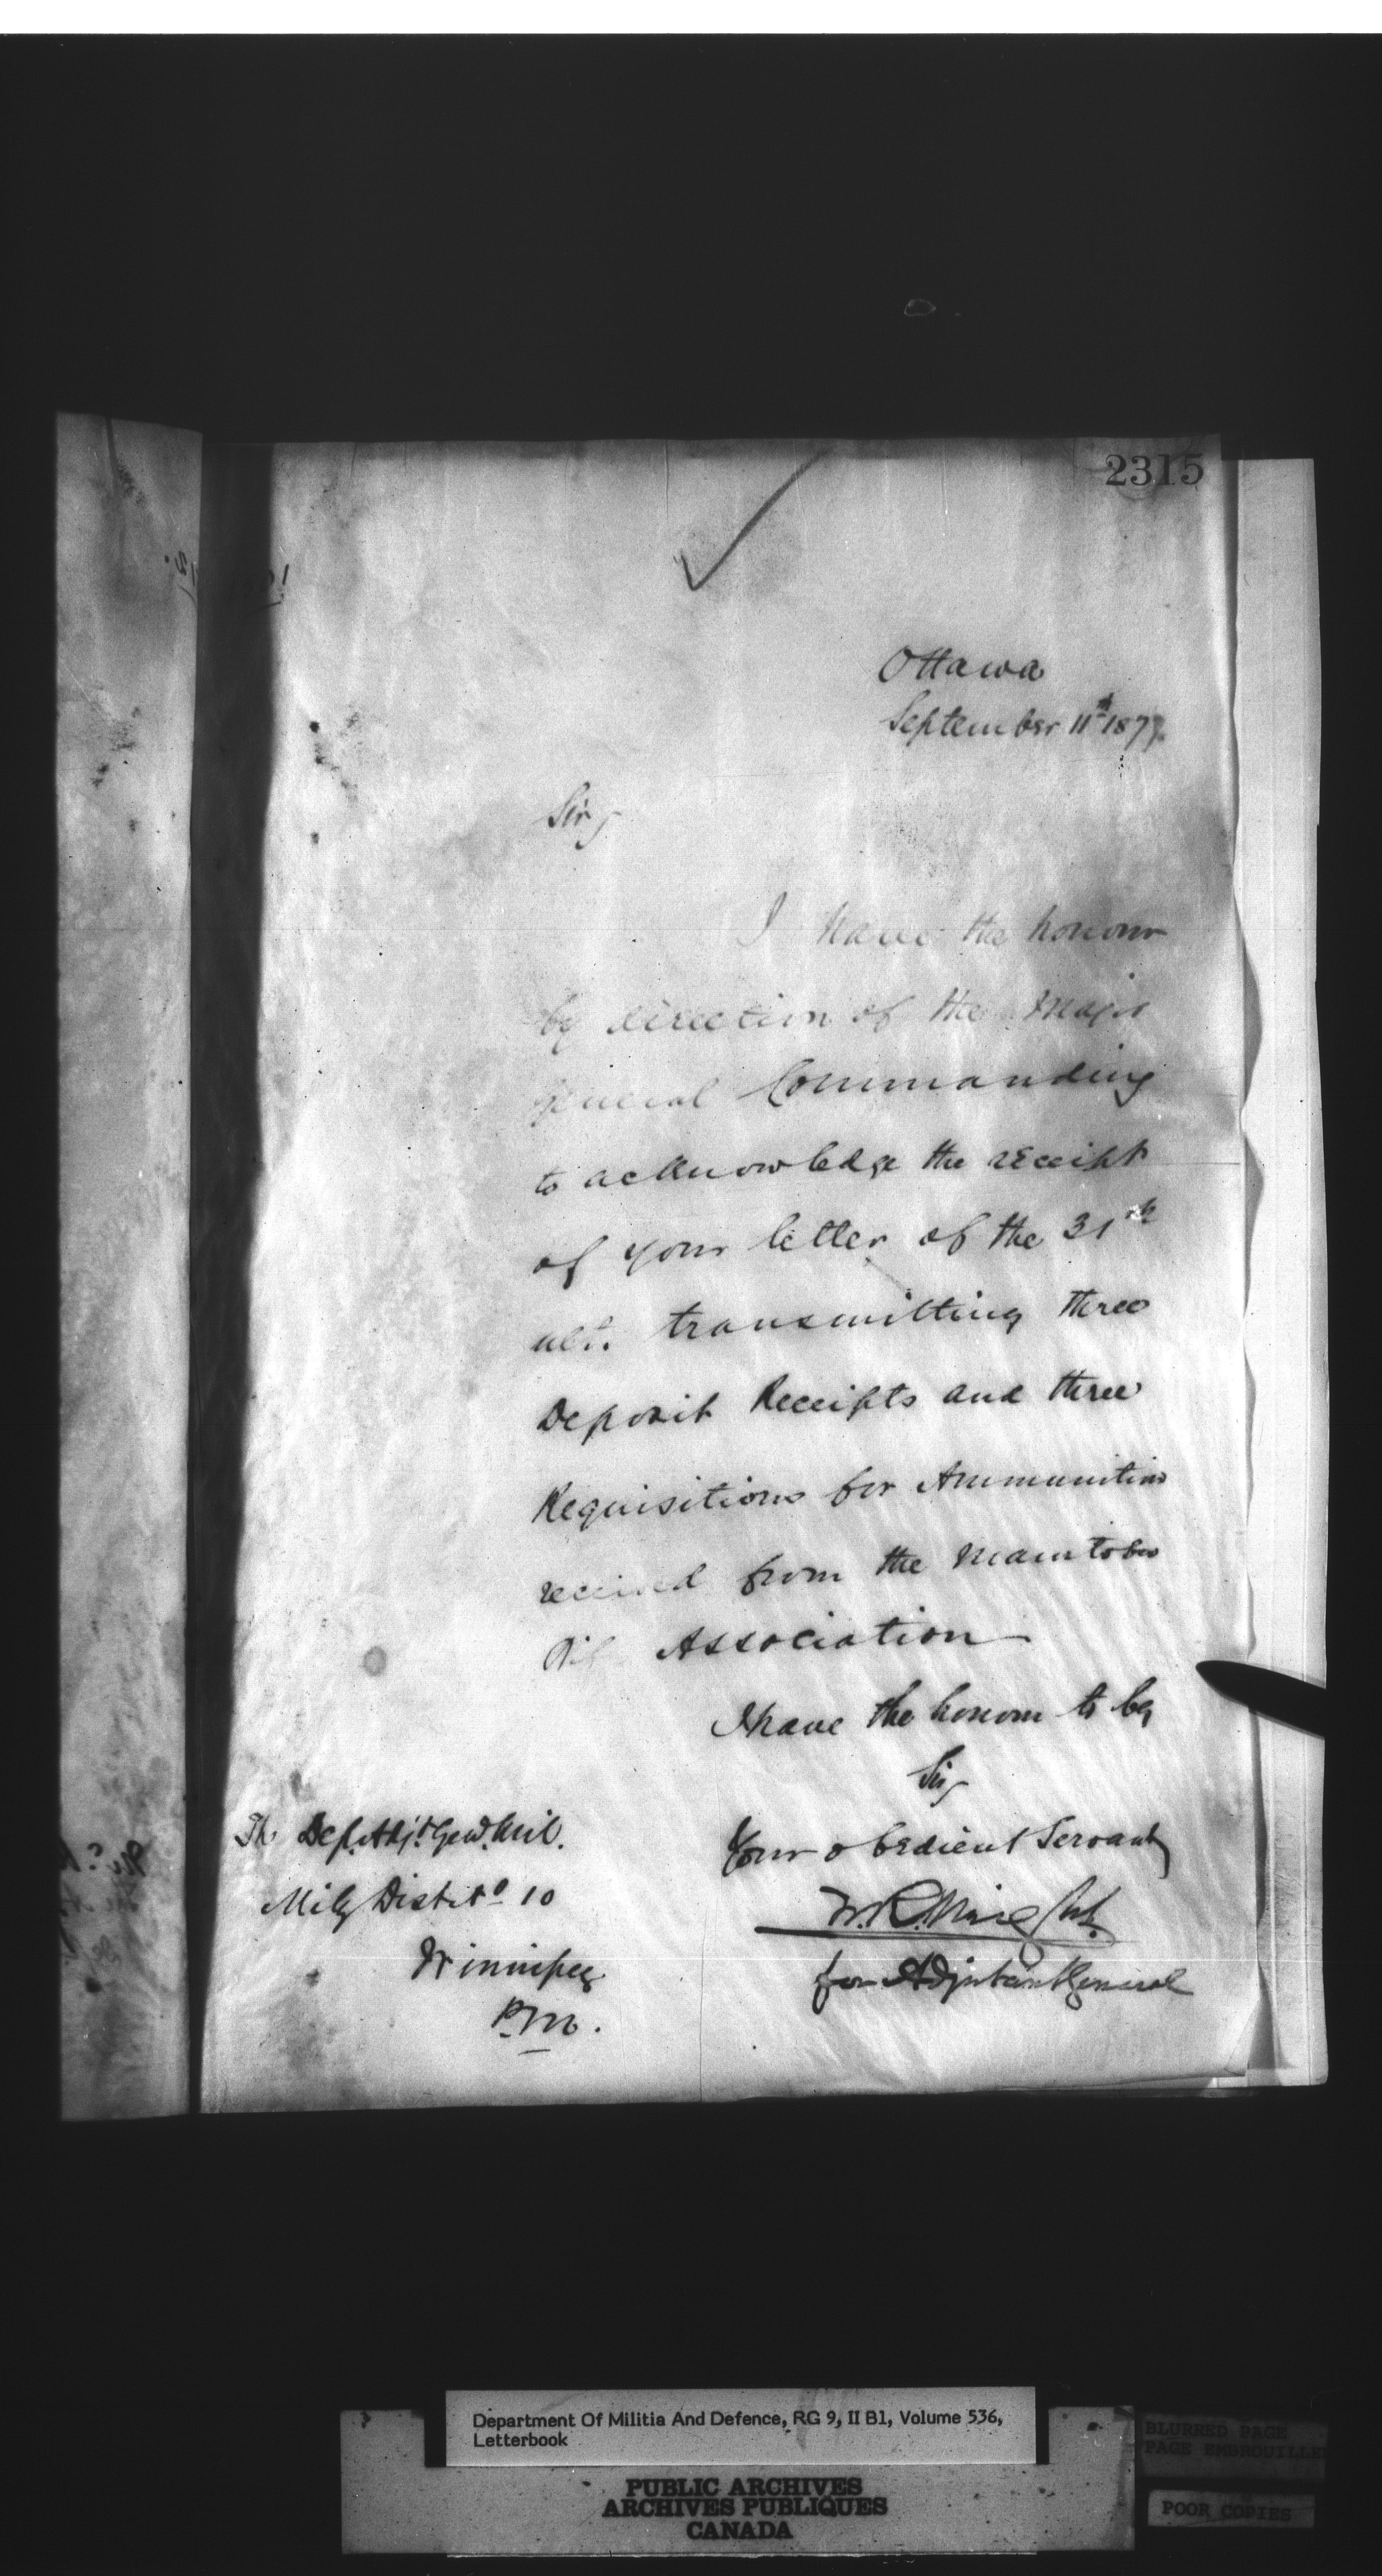 2315
Ottawa
September 11th 1877.
Sir,
I have the honour
by direction of the Major
General Commanding
to acknowledge the receipt
of your letter of the 31st
ulto. transmitting three
Deposit Receipts and three
Requisitions for Ammunition
received from the Manitoba
Association
I have the honour to be,
Sir,
Your obedient Servant,
for Adjutant General
The Dep. Adjt. Genl. Mil.
Mily Distct No 10
Winnipeg
P.M.
Department Of Militia And Defence, RG 9, II B1, Volume 536,
Letterbook
PUBLIC ARCHIVES
ARCHIVES PUBLIQUES
CANADA
BLURRED PAGE
PAGE EMBROUILLE
POOR COPIES